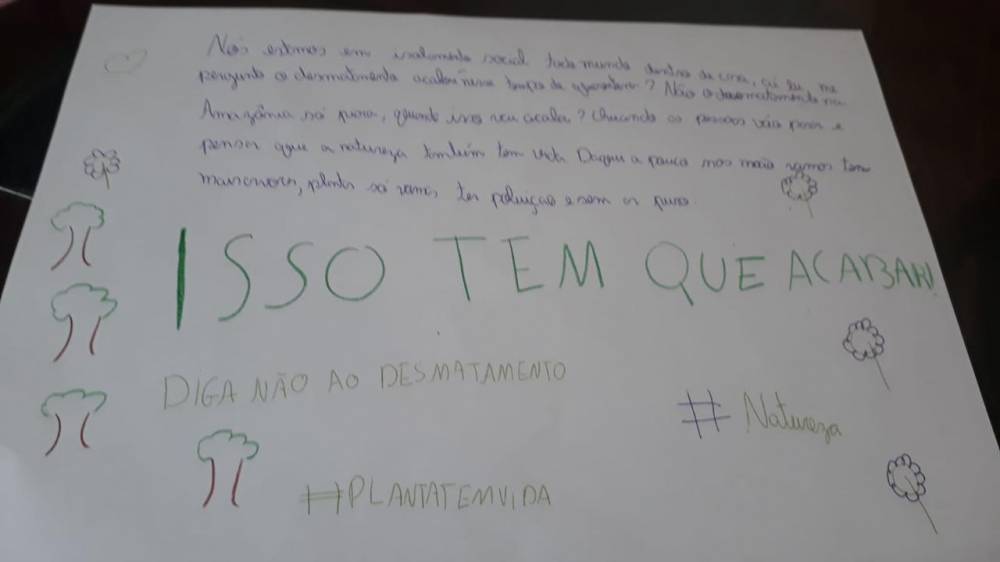 Nós estamos em isolamento social todo mundo dentro de casa, aí eu me
pergunto o desmatamento acabou nesse tempo de quarentena? Não o desmatamento na
Amazônia só piora, quando isso vai acaba? Quando as pessoas vão parar e
pensar que a natureza também tem vida. Daqui a pouco nos mais vamos tem
mais, planta só vamos ter poluição e sem ar puro.
ISSO TEM QUE ACABAR!
DIGA NÃO AO DESMATAMENTO
# Natureza
#PLANTATEMVIDA